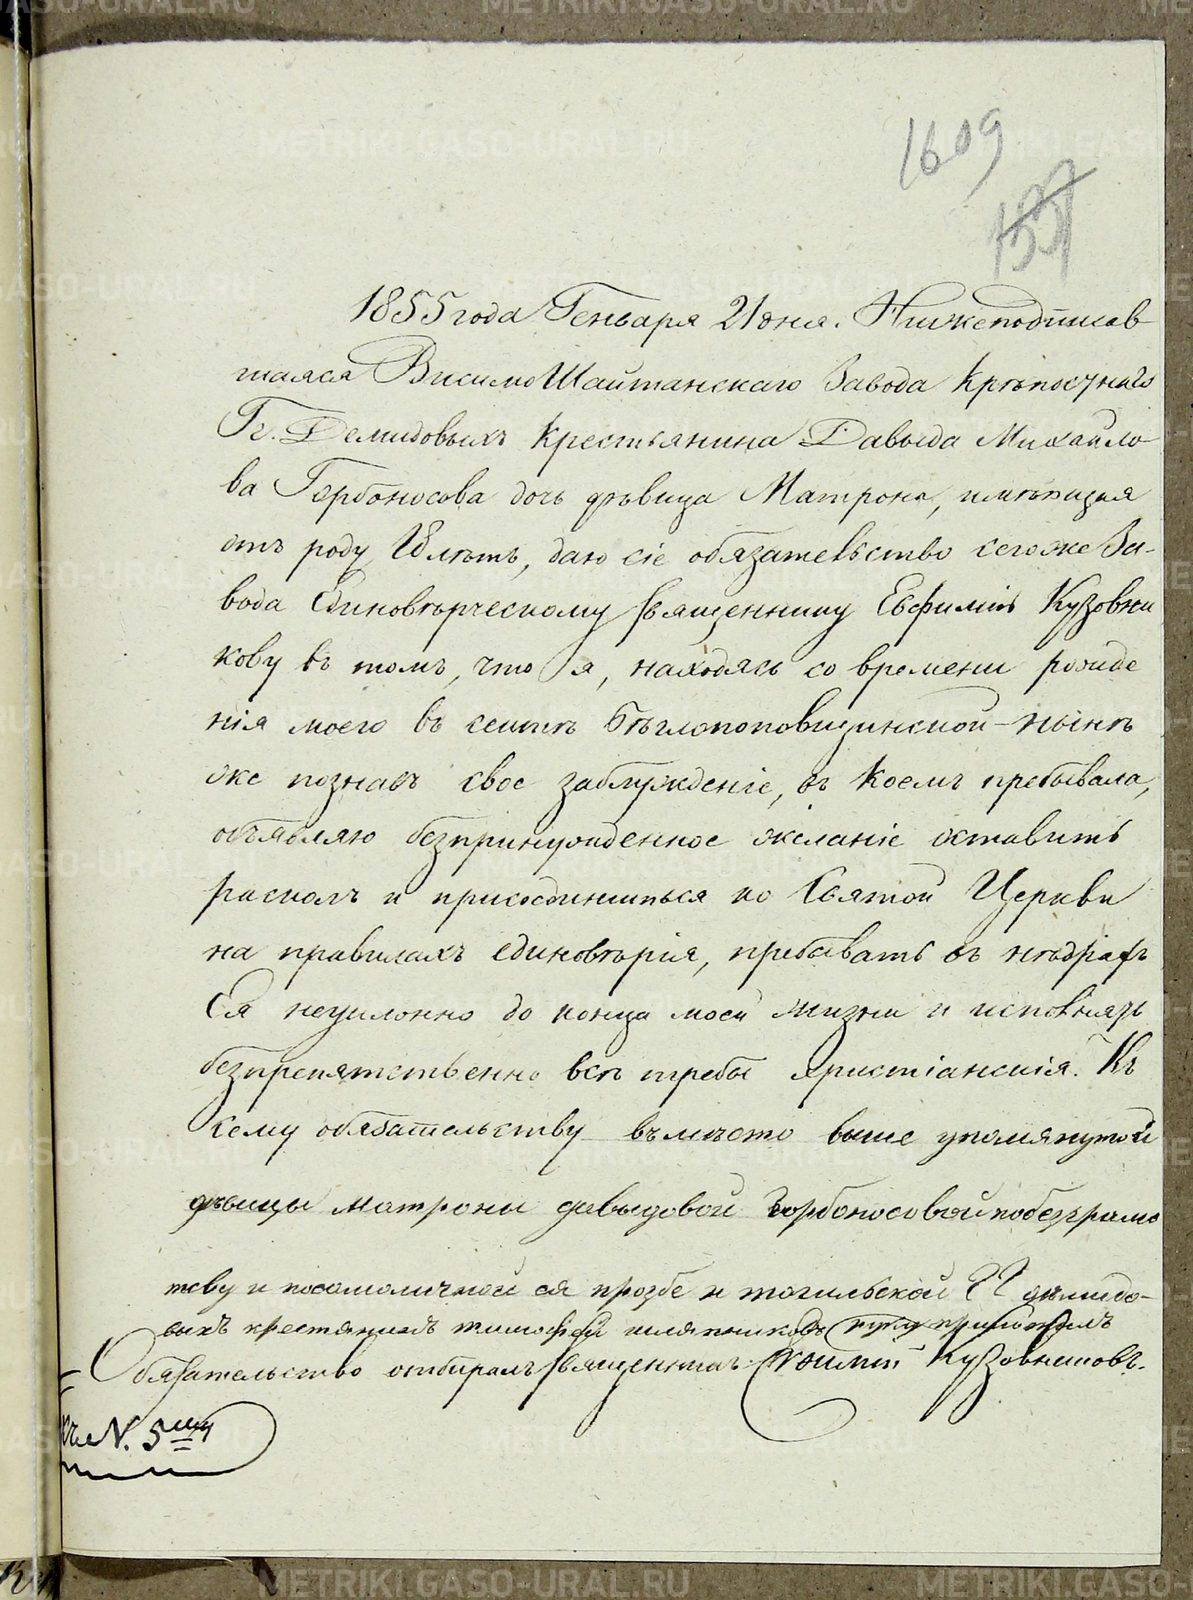 1609
137
1855 года Генваря 21 дня. Нижеподписав
шаяся Висимо Шайтанскаго Завода Крѣпостнаго
Гг. Демидовыхъ Крестьянина Давыда Михайло
ва Горбоносова дочь дѣвица Матрона, имѣющая
отъ роду 18 лѣтъ, даю сіе обязательство сегоже За-
вода Единовѣрческому Священнику Евфимію Кузовни
кову въ томъ, что я, находясь со времени рожде
нія моего въ сектѣ Бѣглопоповщинской - нынѣ
же познавъ свое заблужденіе, въ коемъ пребывала,
объявляю безпринужденное желаніе оставить
расколъ и присоединиться ко Святой Церкви
на правилахъ единовѣрія, пребывать въ нѣдрахъ
Ея неуклонно до конца моей жизни и исполнять
безпрепятственно всѣ требы христіанскія. Къ
сему обязательству въместо выше упомянутой
дѣвицы матроны давыдовой горбоносовой побезграмо
тсву и посамоличной ея прозбе н тагильской ГГ демидо-
выхъ крестянинъ тимофей шляпниковъ руку приложилъ
Обязательство отбиралъ Священникъ Евфимій Кузовниковъ.
къ N. 5му